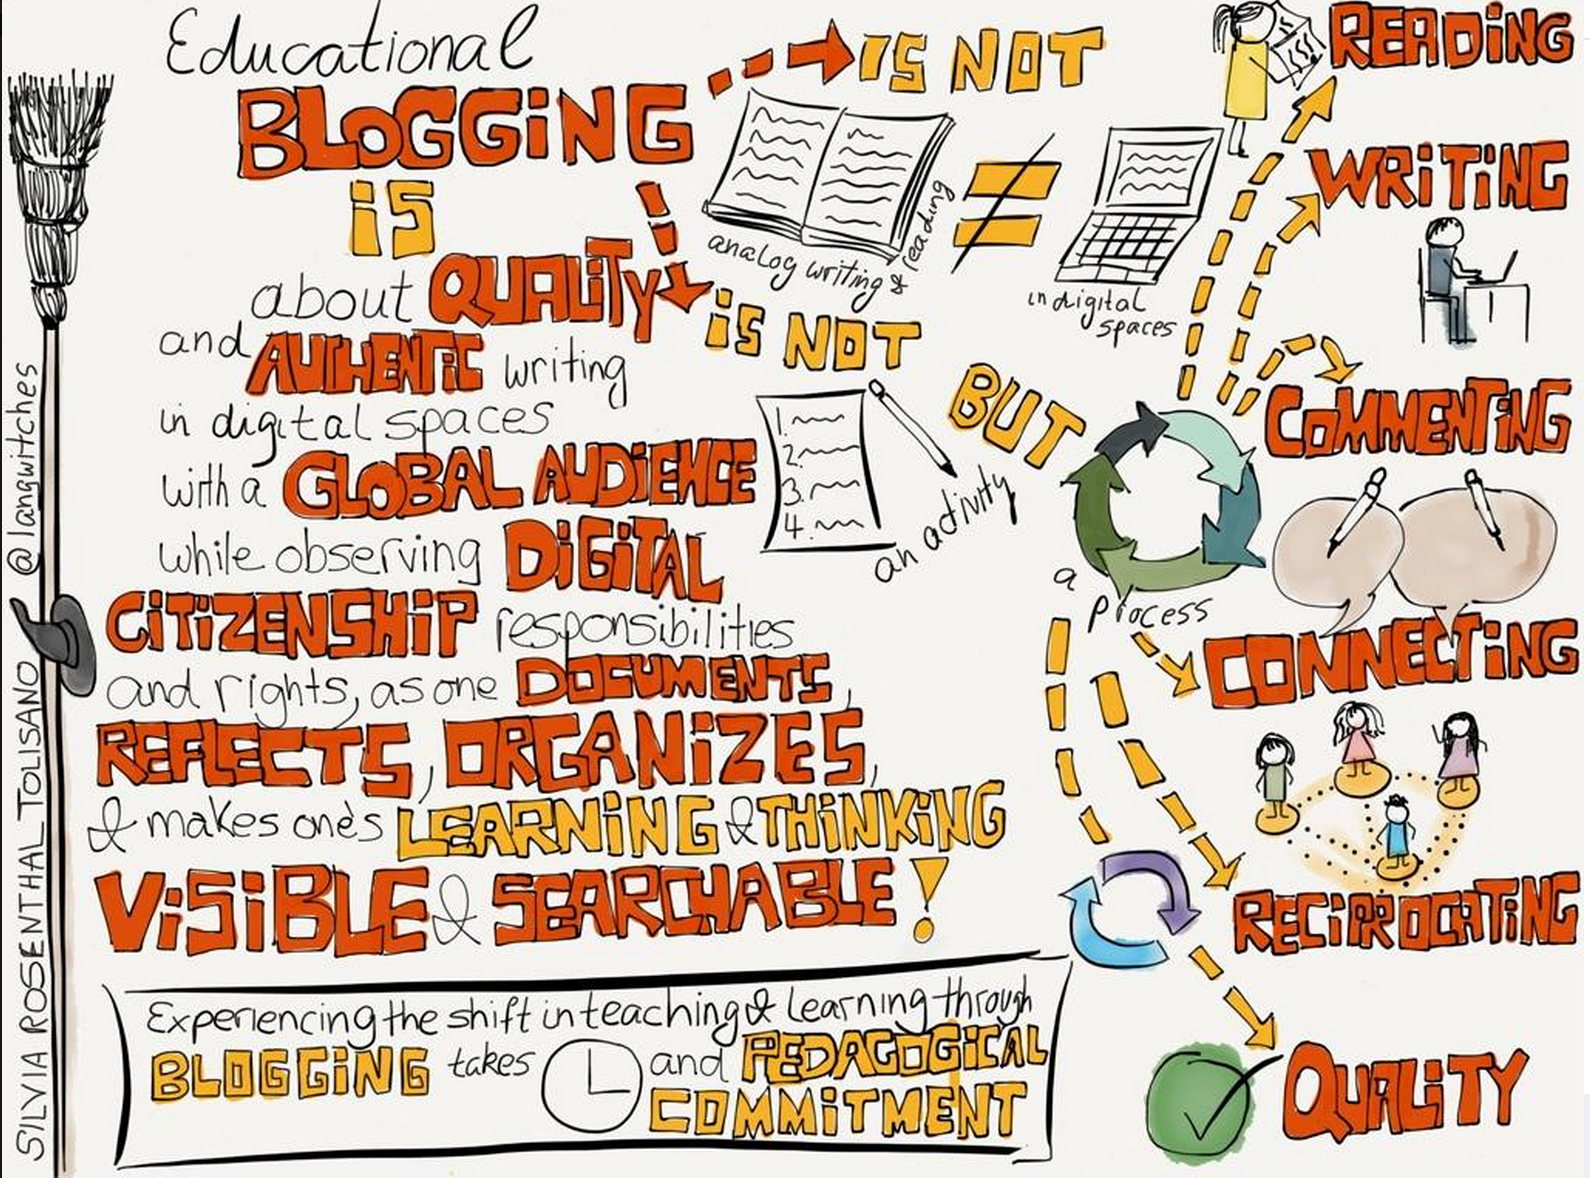 Educational
BLOGGING
IS
about QUALITY
and AUTHENTIC writing
in digital spaces
with a GLOBAL AUDIENCE
while observing DIGITAL
CITIZENSHIP responsibilities
and rights, as one DOCUMENTS,
REFLECTS, ORGANIZES,
& makes one's LEARNING & THINKING
VISIBLE & SEARCHABLE!
IS NOT
analog writing & reading
≠
in digital
spaces
IS NOT
1.
2.
3.
4.
an activity
BUT
a
process
READING
WRITING
COMMENTING
CONNECTING
RECIPROCATING
QUALITY
Experiencing the shift in teaching & Learning through
BLOGGING takes and PEDAGOGICAL
COMMITMENT
SILVIA ROSENTHAL TOLISANO @langwitches